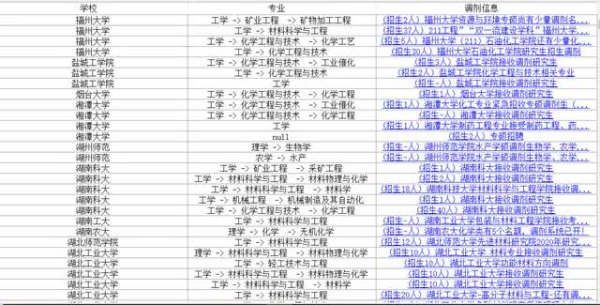 学校 专业 调剂信息
福州大学 工学 -> 矿业工程 -> 矿物加工工程 (招生2人) 福州大学资源与环境专硕尚有少量调剂名...
福州大学 工学 -> 材料科学与工程 (招生37人) 211工程""双一流建设学科"福州大学...
福州大学 工学 -> 化学工程与技术 -> 化学工艺 (招生5人) 福州大学（211）石油化工学院还有少量化...
福州大学 工学 -> 化学工程与技术 (招生30人) 福州大学石油化工学院研究生招生调剂
盐城工学院 工学 -> 化学工程与技术 -> 工业催化 (招生3人) 盐城工学院接收调剂研究生
盐城工学院 工学 -> 化学工程与技术 (招生2人) 盐城工学院化学工程与技术相关专业
盐城工学院 工学 (招生-人) 盐城工学院接收调剂研究生
烟台大学 工学 -> 化学工程与技术 (招生1人) 烟台大学接收调剂研究生
湘潭大学 工学 -> 化学工程与技术 -> 工业催化 (招生1人) 湘潭大学化工专业紧急招收专硕调剂生（...
湘潭大学 工学 -> 化学工程与技术 (招生-人) 湘潭大学接收调剂研究生
湘潭大学 工学 (招生1人) 湘潭大学制药工程专业接受制药工程、药...
湘潭大学 null (招生2人) 专硕招聘
湖州师范 理学 -> 生物学 (招生-人) 湖州师范学院水产学硕调剂生物学、农学...
湖州师范 农学 -> 水产 (招生-人) 湖州师范学院水产学硕调剂生物学、农学...
湖南科大 工学 -> 矿业工程 -> 采矿工程 (招生1人) 湖南科大接收调剂研究生
湖南科大 工学 -> 材料科学与工程 -> 材料物理与化学 (招生2人) 湖南科大接收调剂研究生
湖南科大 工学 -> 材料科学与工程 -> 材料学 (招生18人) 湖南科技大学材料科学与工程学院接收调...
湖南科大 工学 -> 机械工程 -> 机械制造及其自动化 (招生1人) 湖南科大接收调剂研究生
湖南科大 工学 -> 化学工程与技术 -> 化学工程 (招生40人) 湖南科大接收调剂研究生
湖南工大 工学 -> 材料科学与工程 (招生-人) 湖南工业大学包装与材料工程学院接收考...
湖南农大 理学 -> 化学 -> 无机化学 (招生-人) 湖南农大化学类有5个名额，调剂系统已开！
湖北师范学院 工学 -> 材料科学与工程 (招生12人) 湖北师范大学先进材料研究院2020年研究...
湖北工业大学 理学 -> 材料科学与工程 -> 材料物理与化学 (招生10人) 湖北工业大学 材料专业接收调剂研究生
湖北工业大学 工学 -> 轻工技术与工程 (招生20人) 湖北工业大学功能材料方向调剂
湖北工业大学 工学 -> 材料科学与工程 -> 材料物理与化学 (招生20人) 湖北工业大学接收调剂研究生
湖北工业大学 工学 -> 材料科学与工程 -> 材料学 (招生10人) 湖北工业大学接收调剂研究生
湖北工业大学 工学 -> 材料科学与工程 (招生20人) 湖北工业大学-高分子材料与工程-还有调...